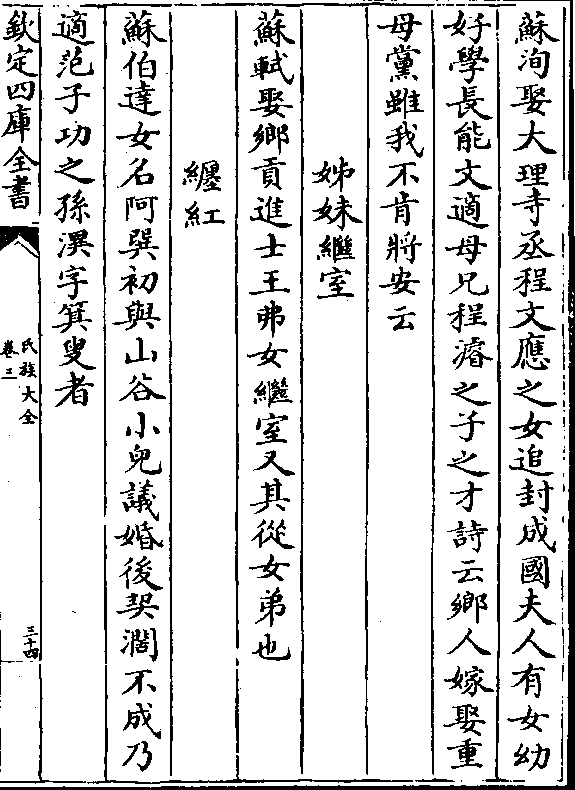 蘇洵娶大理寺丞程文應之女追封成國夫人有女幼
好學長能文適母兄程濬之子之才詩云鄉人嫁娶重
母黨雖我不肯將安云
姊妹繼室
蘇軾娶鄉貢進士王弗女繼室又其從女弟也
纏紅
蘇伯達女名阿巽初與山谷小兒議婚後契濶不成乃
適范子功之孫淏字箕叟者
欽定四庫全書
氏族大全
卷三
三十四